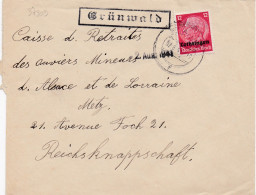 Grünwald
12 12
Lothringen
Deutsches Reich
Caisse de Retraites
des ouviers Mineurs
d'Alsace et de Lorraine
Metz.
21. Avenue Foch 21.
Reichsknappschaft.